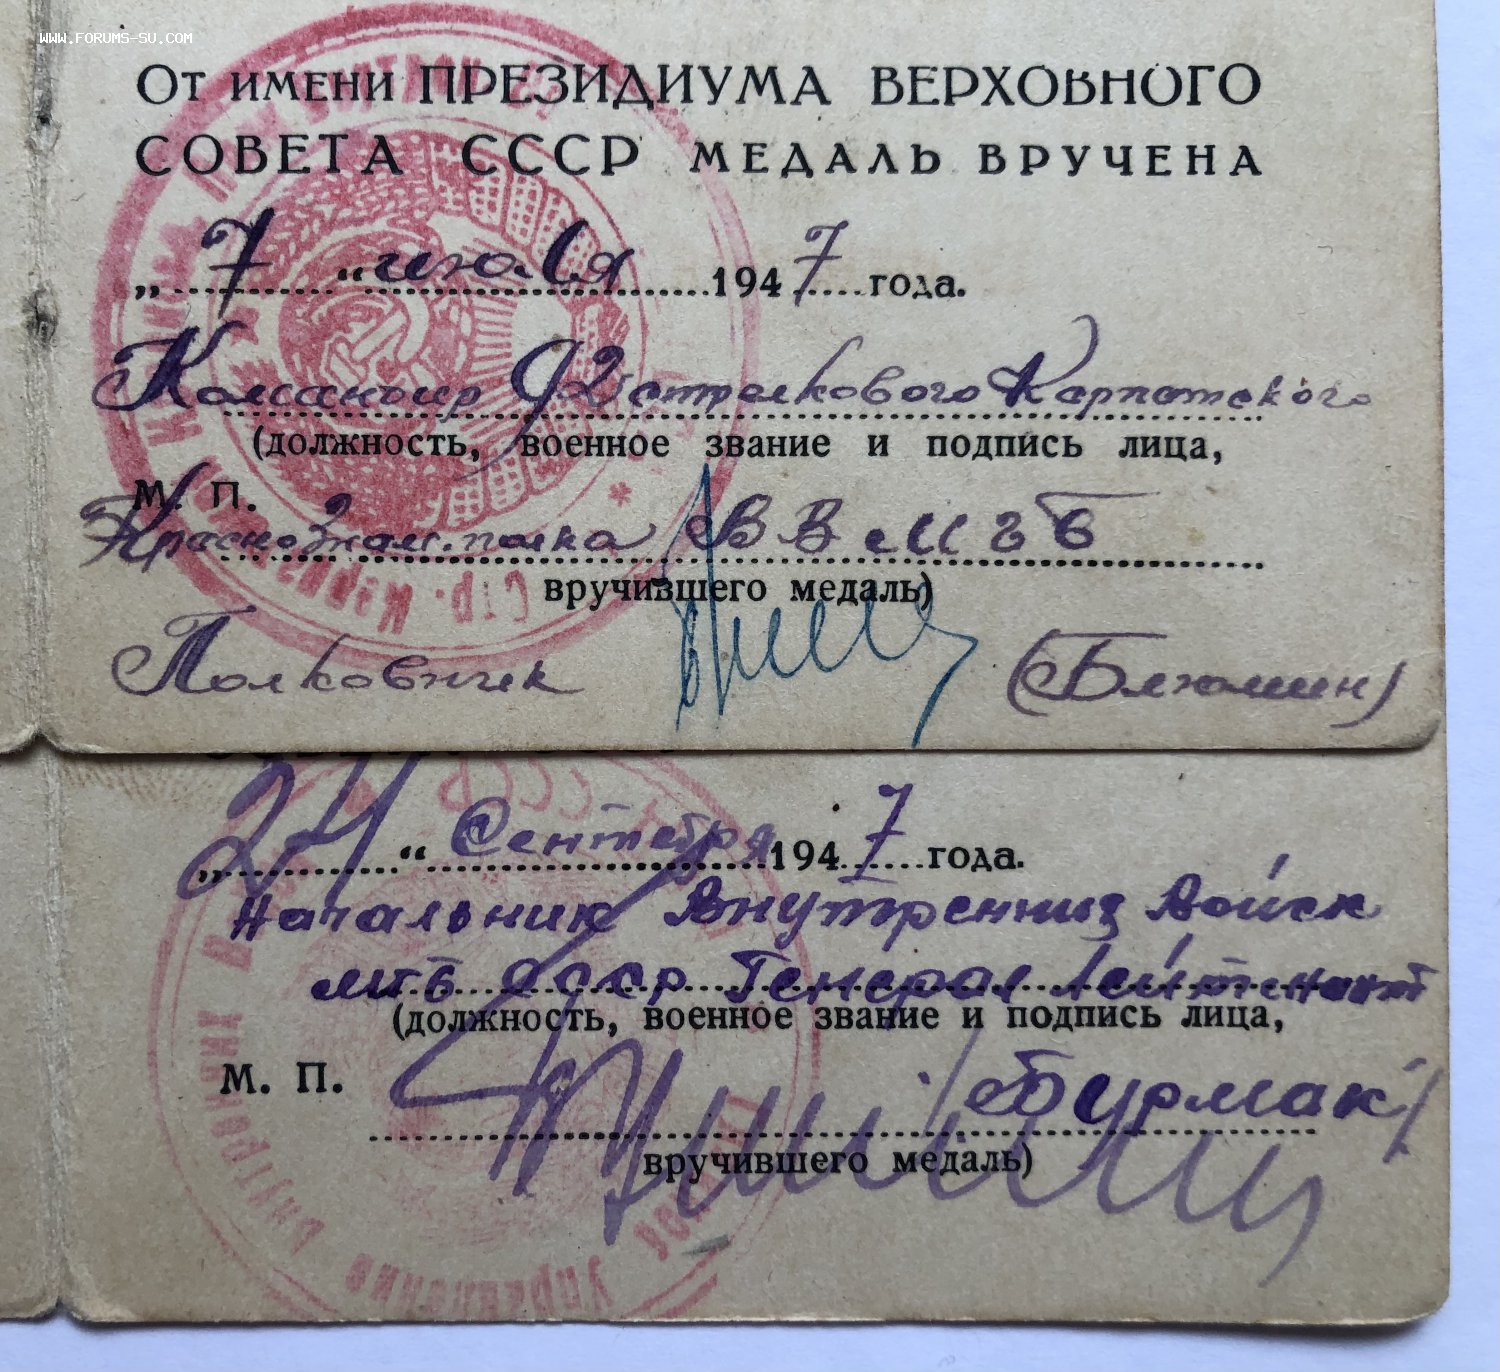 WWW.FORUMS-SU.COM
От имени ПРЕЗИДИУМА ВЕРХОВНОГО
СОВЕТА СССР МЕДАЛЬ ВРУЧЕНА
„7“ июля 1947 года.
Командир 92 стрелкового Карпатского
(должность, военное звание и подпись лица,
М. П.
Краснознам. полка ВВ МГБ
вручившего медаль)
Полковник (Блюмин)
„24“ Сентября 1947 года.
Начальник Внутренних Войск
МГБ СССР Генерал Лейтенант
(должность, военное звание и подпись лица,
М. П.
/Бурмак/
вручившего медаль)